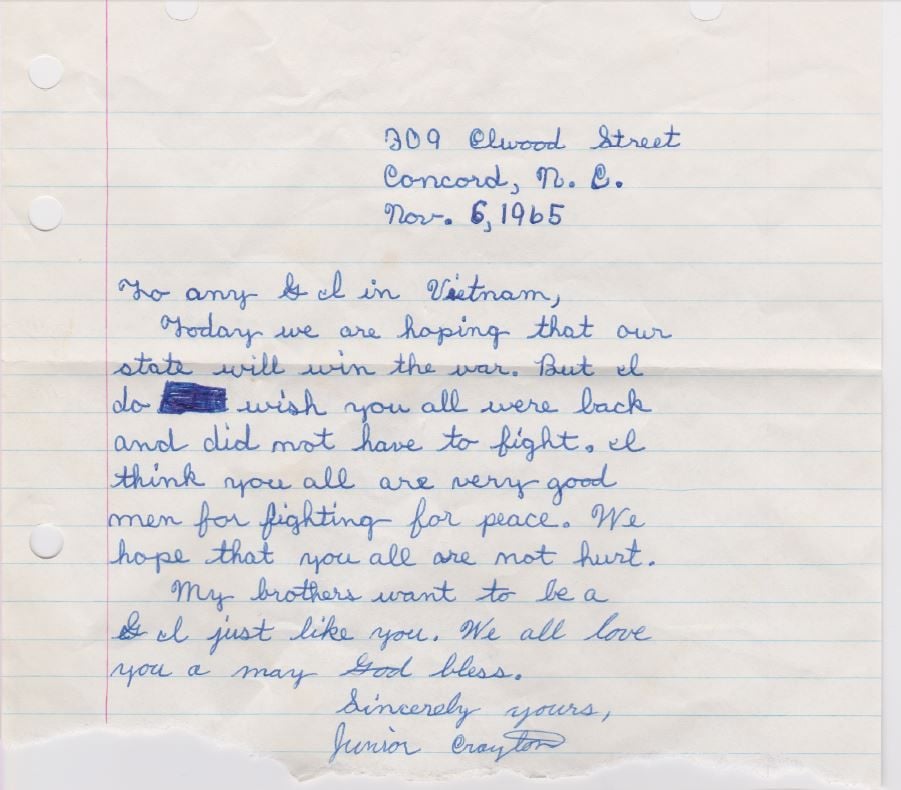 309 Elwood Street
Concord, N. C.
Nov. 6, 1965
To any G I in Vietnam,
Today we are hoping that our
state will win the war. But I
do wish you all were back
and did not have to fight. I
think you all are very good
men for fighting for peace. We
hope that you all are not hurt.
My brothers want to be a
G I just like you. We all love
you a may God bless.
Sincerely yours,
Junior Crayton